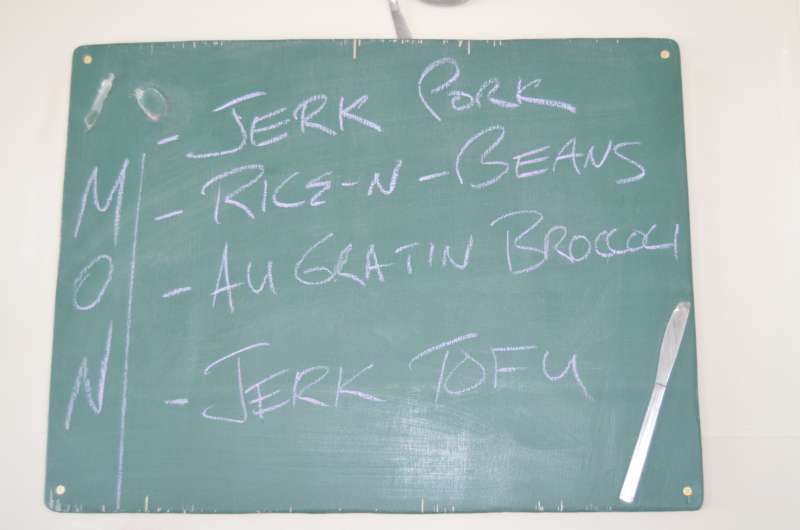 MON
- JERK PORK
- RICE-N-BEANS
- AU GRATIN BROCCOLI
- JERK TOFU